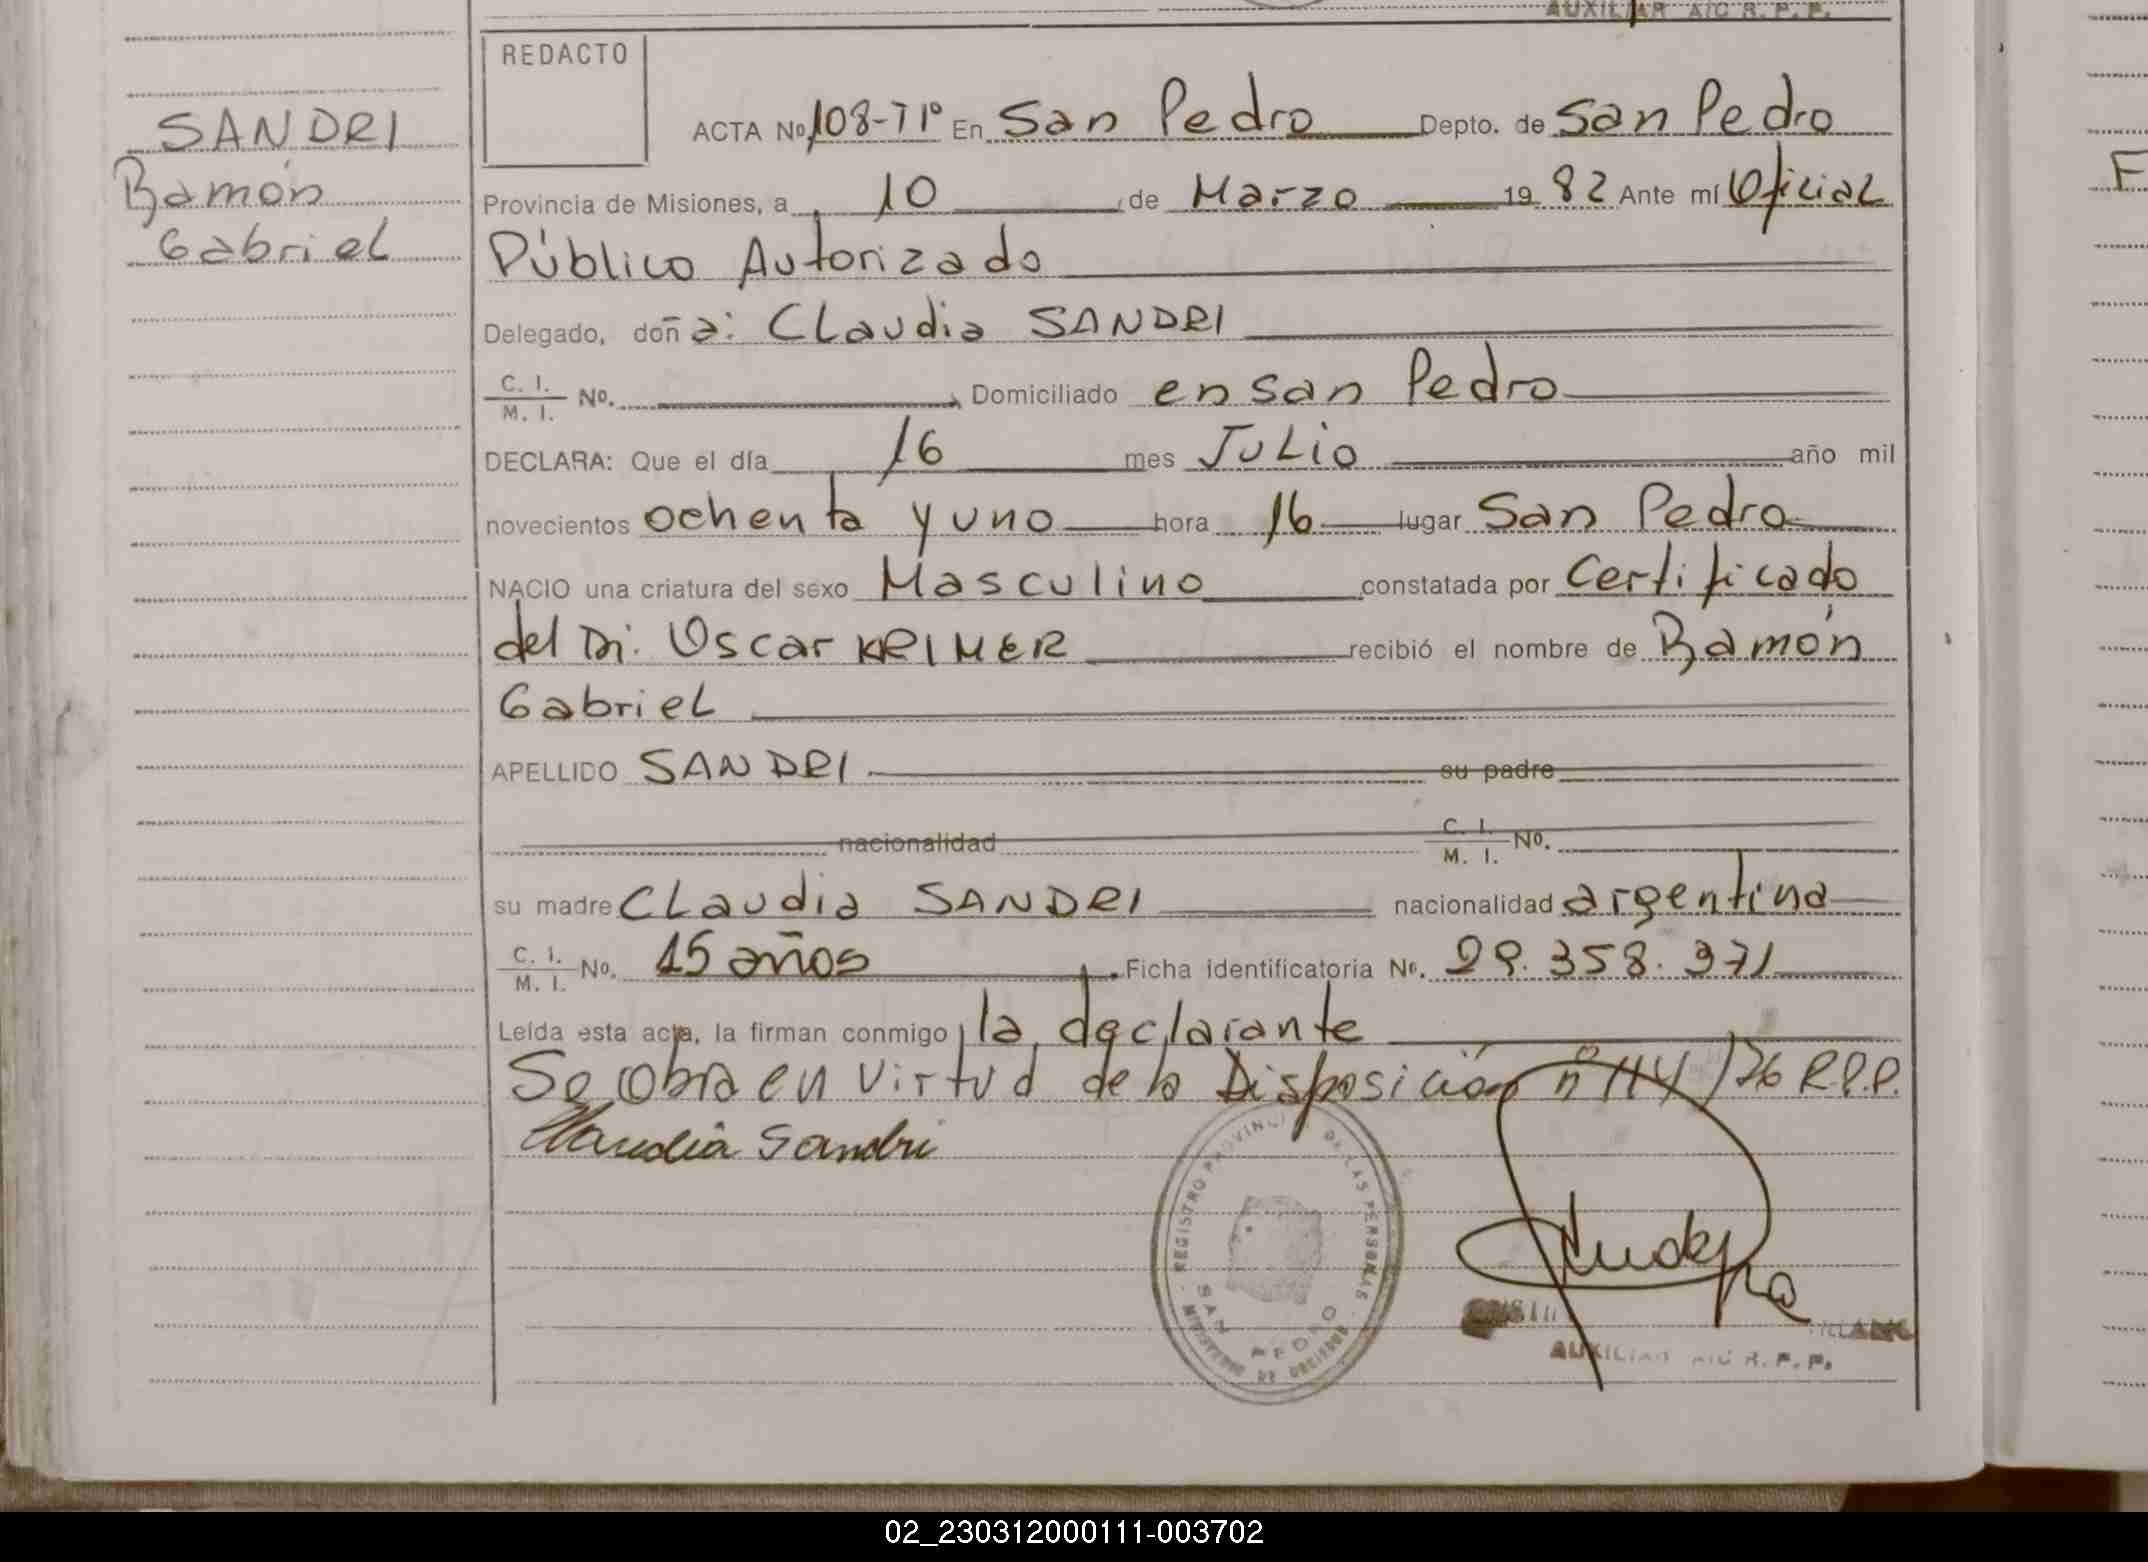 AUXILIAR A/C R. P. P.
REDACTO
SANDRI
Ramón
Gabriel
ACTA Nº 108-T1º En San Pedro Depto. de San Pedro
Provincia de Misiones, a 10 de Marzo 1982 Ante mí Oficial
Público Autorizado
Delegado, doña: Claudia SANDRI
C. I.
M. I. Nº. Domiciliado en San Pedro
DECLARA: Que el día 16 mes Julio año mil
novecientos ochenta y uno hora 16 lugar San Pedro
NACIO una criatura del sexo Masculino constatada por Certificado
del Dr. Oscar KRIMER recibió el nombre de Ramón
Gabriel
APELLIDO SANDRI su padre
nacionalidad C. I.
M. I. Nº.
su madre Claudia SANDRI nacionalidad argentina
C. I.
M. I. Nº. 15 años Ficha identificatoria Nº. 29.358.371
Leída esta acta, la firman conmigo, la declarante
Se obra en virtud de la Disposición nº 114/76 R.P.P.
Claudia Sandri
REGISTRO PROVINCIAL DE LAS PERSONAS
SAN PEDRO
MINISTERIO DE GOBIERNO
AUXILIAR A/C R. P. P.
F
02_230312000111-003702